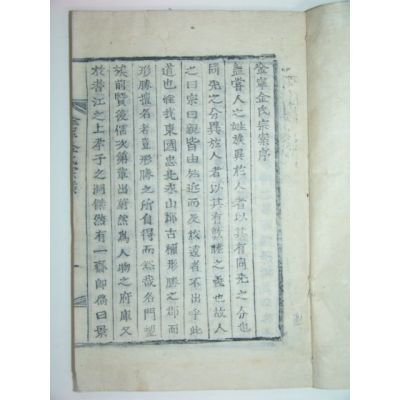 金寧金氏宗案序
盖嘗人之姓族異於人者以其有同先之分也
同先之分異於人者以其有敦睦之義也故人
之曰宗曰親皆由於近而及於遠者不出乎此
道也惟我東國忠北泰山郡古稱形勝之郡而
形勝擅名者豈形勝之所自得而然哉名門望
族前賢後儒次第輩出蔚然為人物之府庫又
於耆江之上孝子之洞傑然有一齋即扁曰景